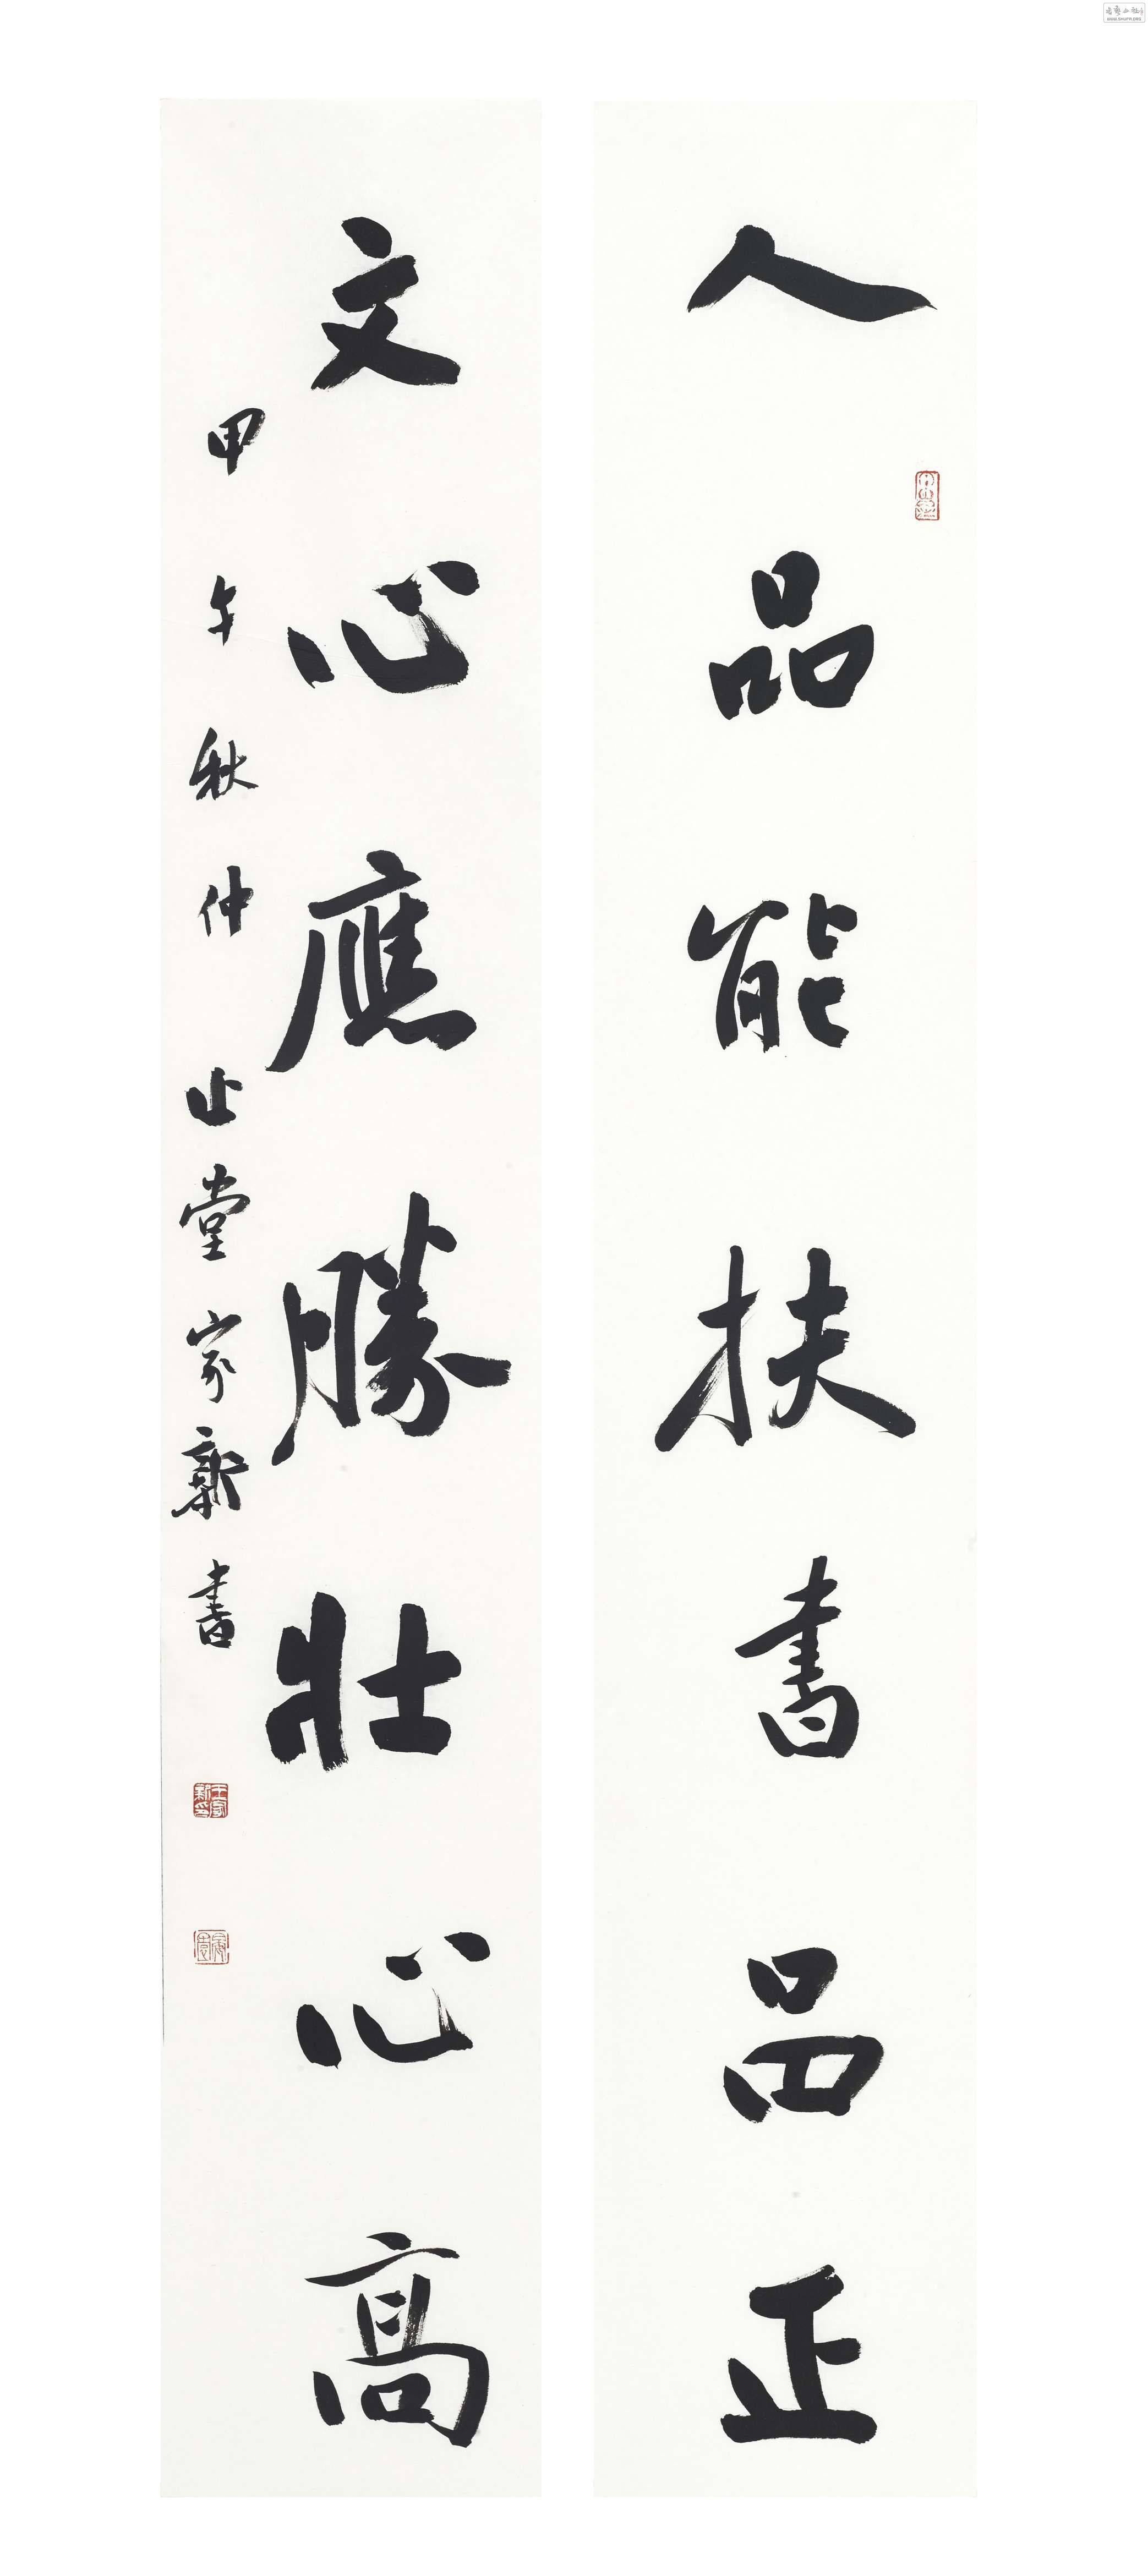 人品能扶書品正
文心應勝壯心高
甲午秋仲止堂家新書
王家新印